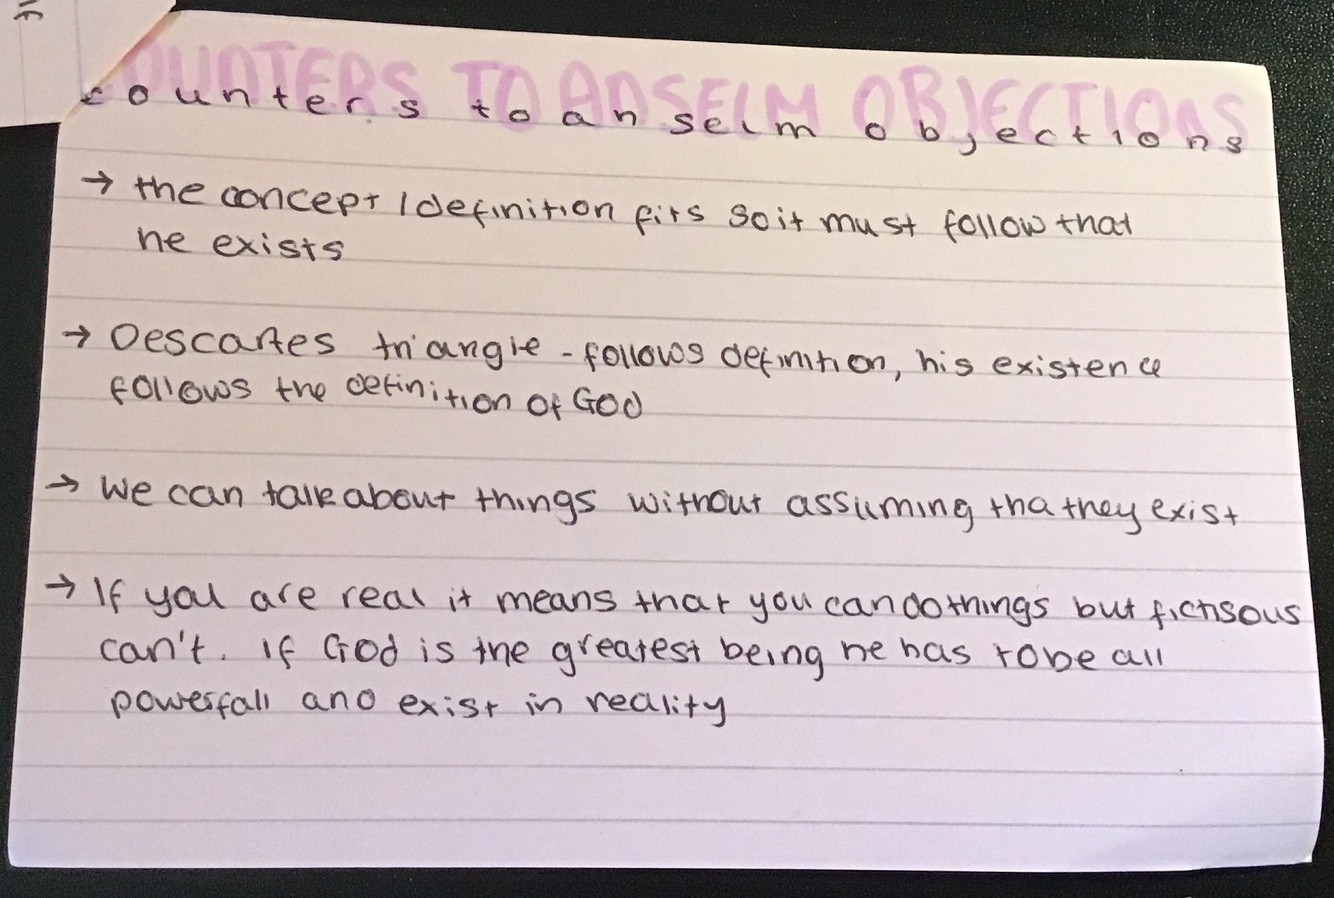 COUNTERS TO ANSELM OBJECTIONS
counters to anselm objections
→ the concept / definition fits so it must follow that
he exists
→ Descartes triangle - follows definition, his existence
follows the definition of God
→ We can talk about things without assuming tha they exist
→ If you are real it means that you can do things but fictisous
can't. If God is the greatest being he has to be all
powerfall and exist in reality